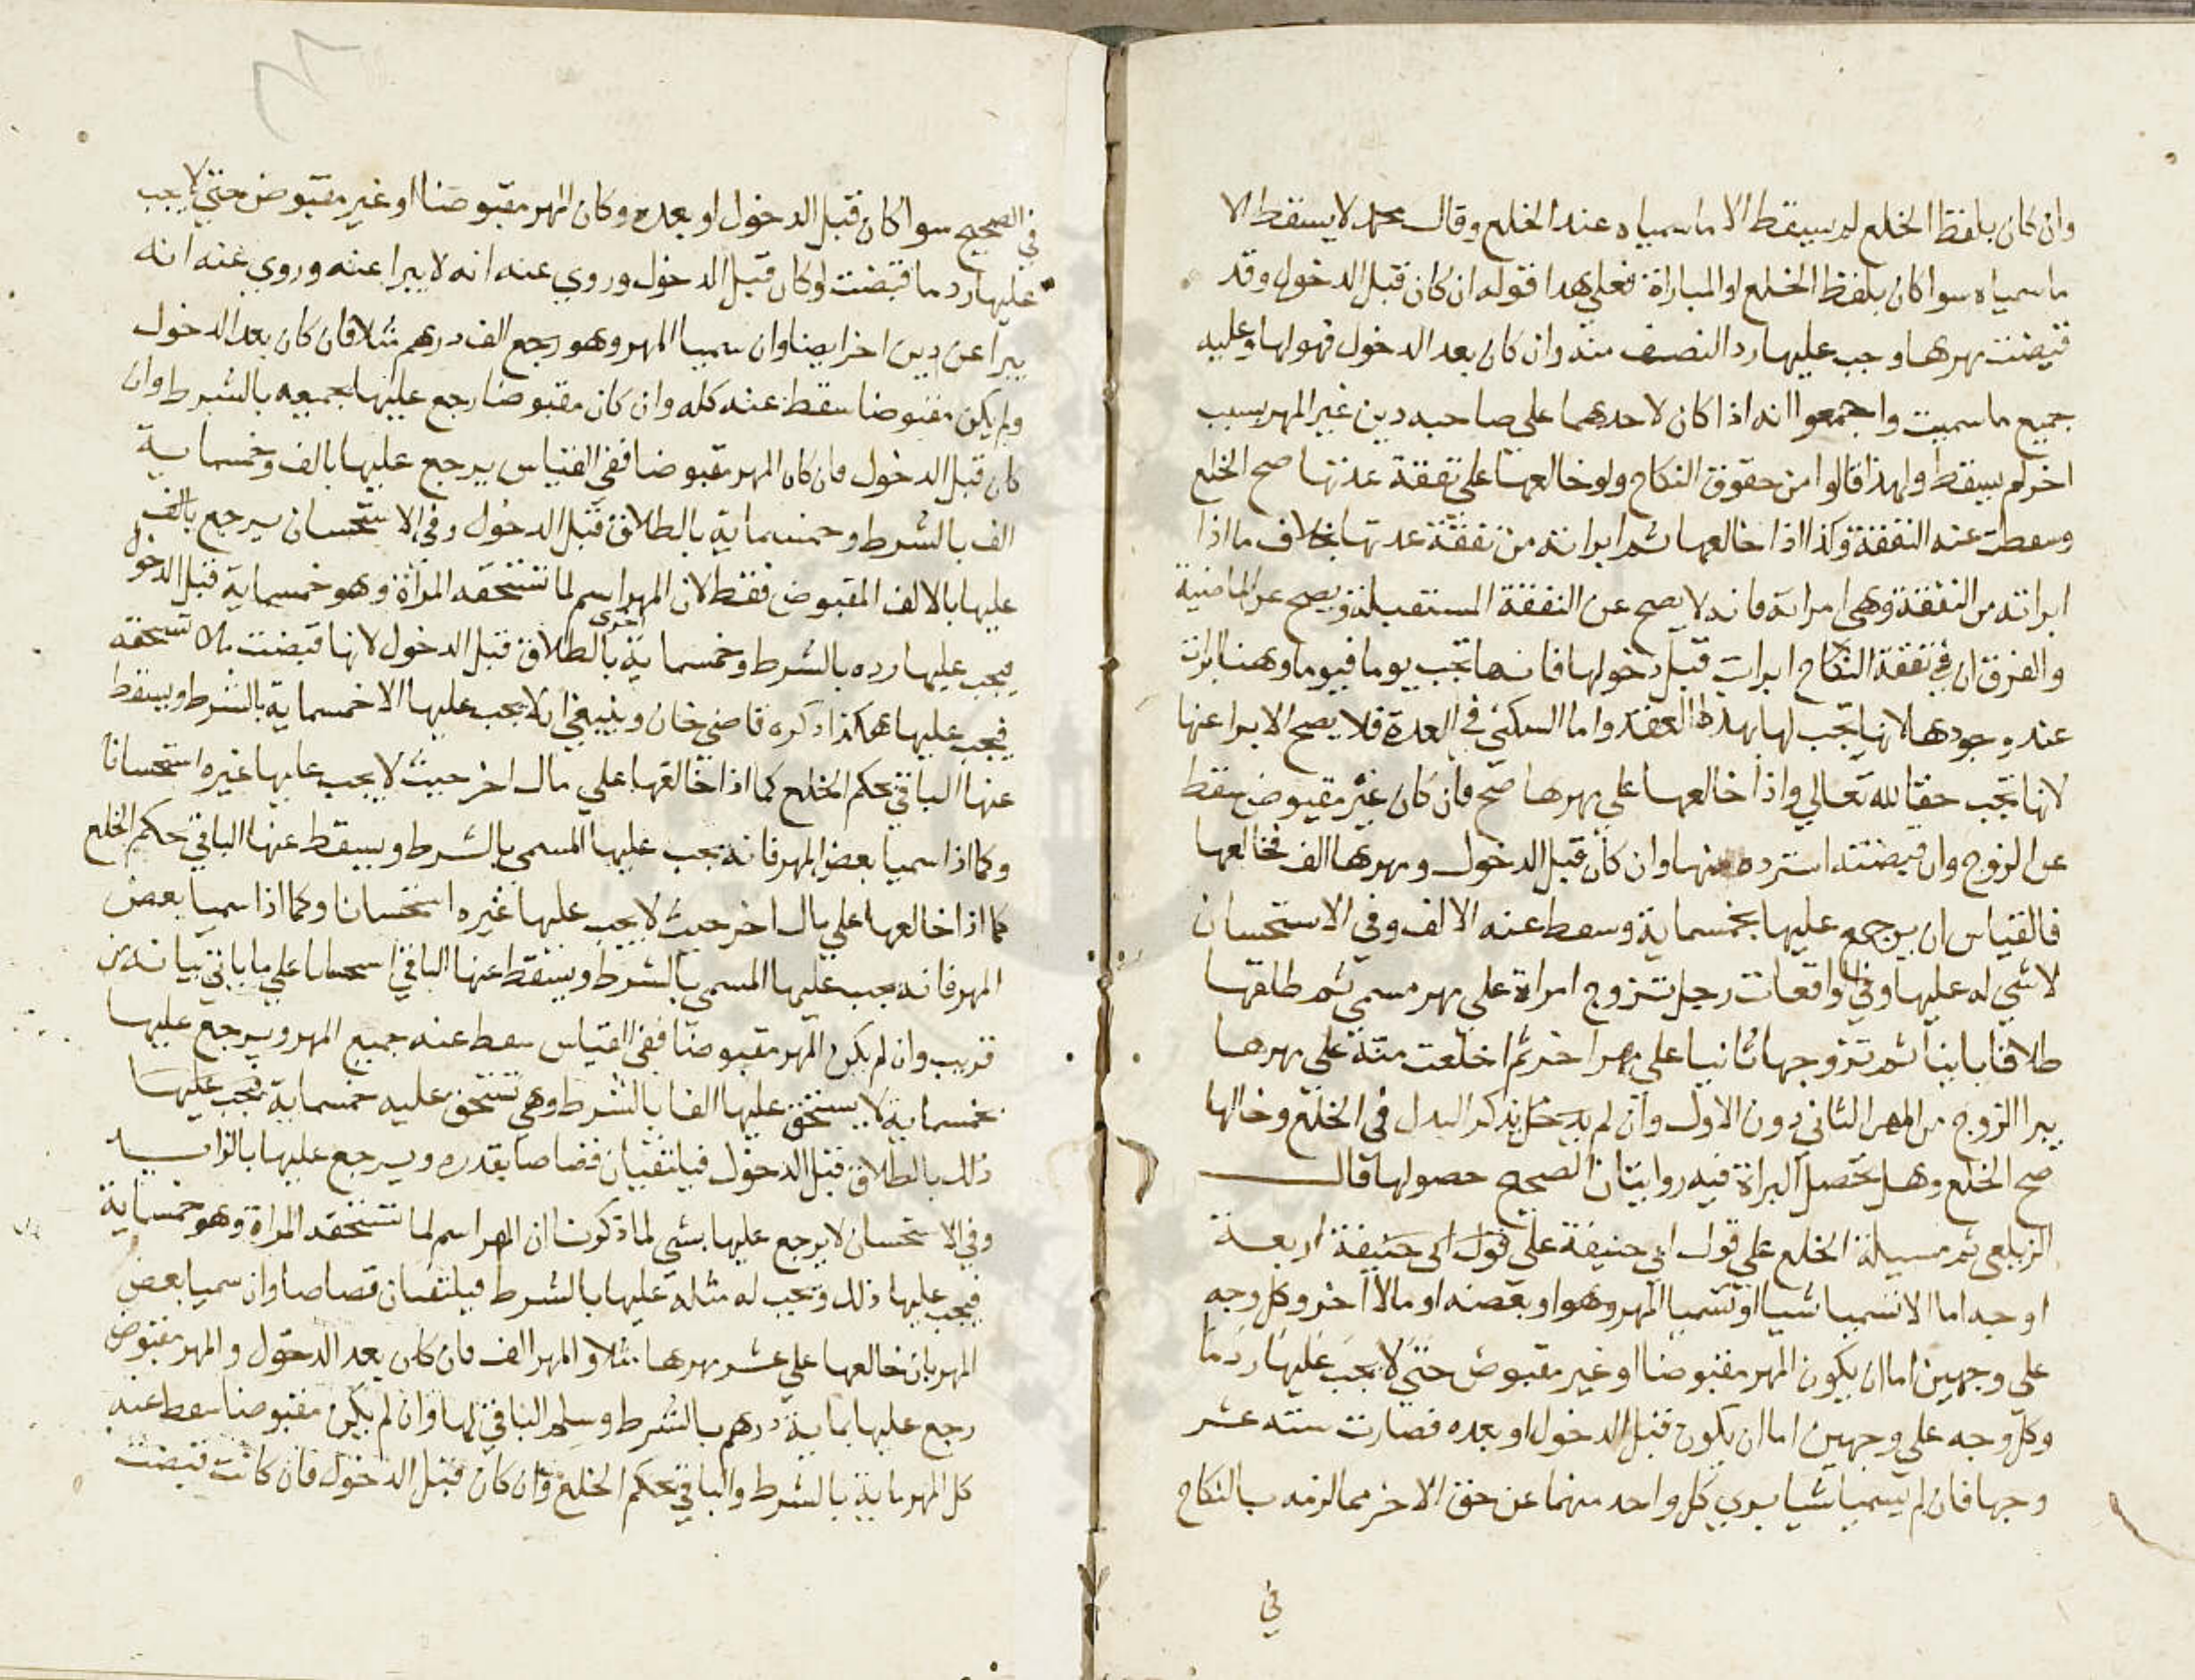 وان كان بلفظ الخلع لم يسقط الا ما سمياه عند الخلع وقال محمد لا يسقط الا
ما سمياه سوا كان بلفظ الخلع او المباراة فعلي هدا قوله ان كان قبل الدخول وقد
قبضت مهرها وجب عليها رد النصف منه وان كان بعد الدخول فهو لها وعليه
جميع ما سميت واجمعوا انه اذا كان لاحدهما علي صاحبه دين غير المهر بسبب
اخر لم يسقط ولهذا قالوا من حقوق النكاح ولو خالعها علي نفقة عدتها صح الخلع
وسقطت عنه النفقة وكذا اذا خالعها ثم ابراته من نفقة عدتها بخلاف ما اذا
ابراته من النفقة وهي امراته فانه لا يصح عن النفقة المستقبلة ويصح عن الماضية
والفرق ان في نفقة النكاح ابرات قبل دخولها فانها تجب يوما فيوما وهنا ابرات
عند وجودها لانها تجب لها بهذا العقد واما السكني في العدة فلا يصح الابرا عنها
لانها تجب حقا لله تعالي واذا خالعها علي مهرها صح فان كان غير مقبوض سقط
عن الزوج وان قبضته استرده منها وان كان قبل الدخول ومهرها الف فخالعها
فالقياس ان يرجع عليها بخمسماية وسقط عنه الالف وفي الاستحسان
لا شي له عليها وفي الواقعات رجل تزوج امراة علي مهر مسمي ثم طلقها
طلاقا باينا ثم تزوجها ثانيا علي مهر اخر ثم اختلعت منه علي مهرها
يبرا الزوج من المهر الثاني دون الاول وان لم يدخل بذكر البدل في الخلع وخالها
صح الخلع وهل تحصل البراة فيه روايتان الصحيح حصولها قال
الزيلعي ثم مسيلة الخلع علي قول ابي حنيفة علي قول ابي حنيفة اربعة
اوجه اما الا تسميا شيا او تسميا المهر وهو او بعضه او مالا اخر وكل وجه
علي وجهين اما ان يكون المهر مقبوضا او غير مقبوض حتي لا يجب عليها رد ما
وكل وجه علي وجهين اما ان يكون قبل الدخول او بعده فصارت سته عشر
وجها فان لم يسميا شيا بري كل واحد منهما عن حق الاخر مما لزمه بالنكاح
في
في الصحيح سوا كان قبل الدخول او بعده وكان المهر مقبوضا او غير مقبوض حتي لا يجب
عليها رد ما قبضت لو كان قبل الدخول وروي عنه انه لا يبرا عنه وروي عنه انه
يبرا عن دين اخر ايضا وان سميا المهر وهو رجع الف درهم مثلا فان كان بعد الدخول
ولم يكن مقبوضا سقط عنه كله وان كان مقبوضا رجع عليها بجميعه بالشرط وان
كان قبل الدخول فان كان المهر مقبوضا ففي القياس يرجع عليها بالف وخمسماية
الف بالشرط وخمسماية بالطلاق قبل الدخول وفي الاستحسان يرجع بالف
عليها بالالف المقبوض فقط لان المهر اسم لما تستحقه المراة وهو خمسماية قبل الدخول
فيجب عليها رده بالشرط وخمسماية اخري بالطلاق قبل الدخول لانها قبضت مالا تستحقه
فيجب عليها هكذا ذكره قاضي خان وينبغي ان لا يجب عليها الا خمسماية بالشرط ويسقط
عنها الباقي بحكم الخلع كما اذا خالعها علي مال اخر حيث لا يجب عليها غيره استحسانا
وكما اذا سميا بعض المهر فانه يجب عليها المسمي بالشرط ويسقط عنها الباقي حكم الخلع
كما اذا خالعها علي مال اخر حيث لا يجب عليها غيره استحسانا وكما اذا سميا بعض
المهر فانه يجب عليها المسمي بالشرط ويسقط عنها الباقي استحسانا علي ما ياتي بيانه من
قريب وان لم يكن المهر مقبوضا ففي القياس سقط عنه جميع المهر ويرجع عليها
بخمسماية لا يستحق عليها الفا بالشرط وهي تستحق عليه خمسماية فيجب عليها
ذلك بالطلاق قبل الدخول فيلتقيان قصاصا بقدره ويرجع عليها بالزايد
وفي الاستحسان لا يرجع عليها بشي لما ذكرنا ان المهر اسم لما تستحقه المراة وهو خمسماية
فيجب عليها ذلك وتجب له مثله عليها بالشرط فيلتقيان قصاصا وان سميا بعض
المهر بان خالعها علي عشر مهرها مثلا والمهر الف فان كان بعد الدخول والمهر مقبوض
رجع عليها بماية درهم بالشرط وسلم الباقي لها وان لم يكن مقبوضا سقط عنه
كل المهر ماية بالشرط والباقي بحكم الخلع وان كان قبل الدخول فان كانت قبضت